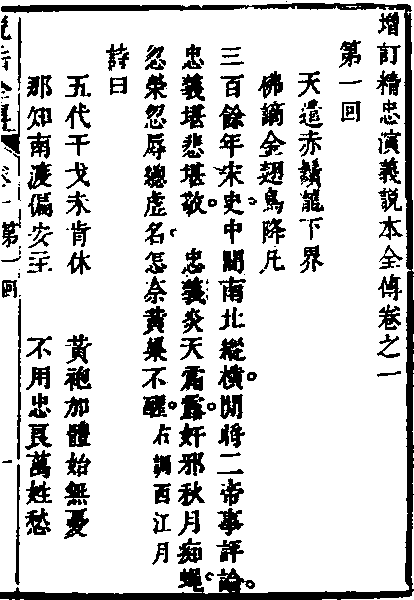 增訂精忠演義說本全傳卷之一
第一回
天遣赤鬚龍下界
佛謫金翅鳥降凡
三百餘年宋史中間南北縱橫。閒將二帝事評論。
忠義堪悲堪敬。 忠義炎天霜露。奸邪秋月痴蠅。
忽榮忽辱總虛名。怎奈黃粱不醒。右調西江月
詩曰
五代干戈未肯休 黃袍加體始無憂
那知南渡偏安主 不用忠良萬姓愁
說岳全傳 卷一 第一回 一